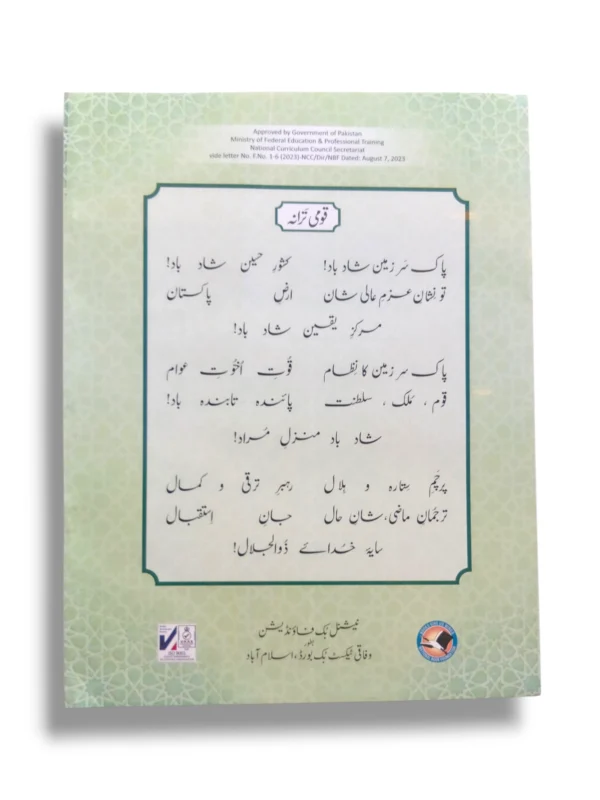 Approved by Government of Pakistan
Ministry of Federal Education & Professional Training
National Curriculum Council Secretariat
vide letter No. F.No. 1-6 (2023)-NCC/Dir/NBF Dated: August 7, 2023
قومی ترانہ
پاک سَرزمین شاد باد! کشورِ حسین شاد باد!
تو نشانِ عزمِ عالی شان ارضِ پاکستان
مرکزِ یقین شاد باد!
پاک سرزمین کا نِظام قُوّتِ اُخُوّتِ عوام
قوم ، مُلک ، سلطنت پائندہ تابندہ باد!
شاد باد منزلِ مُراد!
پرچَمِ سِتارہ و ہِلال رہبرِ ترقی و کمال
ترجُمانِ ماضی، شانِ حال جانِ اِستقبال
سایۂ خُدائے ذُوالجلال!
نیشنل بُک فاؤنڈیشن
بطور
وفاقی ٹیکسٹ بُک بورڈ، اسلام آباد